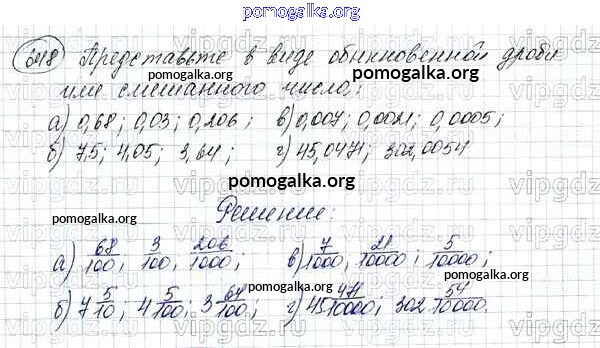 pomogalka.org
648 Представьте в виде обыкновенной дроби
pomogalka.org
или смешанного число:
а) 0,68; 0,03; 0,206; в) 0,007; 0,0021; 0,0005;
б) 7,5; 4,05; 3,64; г) 45,0471; 302,0054
pomogalka.org
Решение:
pomogalka.org
а) 68/100; 3/100, 206/1000; в) 7/1000, 21/10000; 5/10000;
б) 7 5/10; 4 5/100; 3 64/100; г) 45 471/10000; 302 54/10000.
pomogalka.org
vipgdz.ru